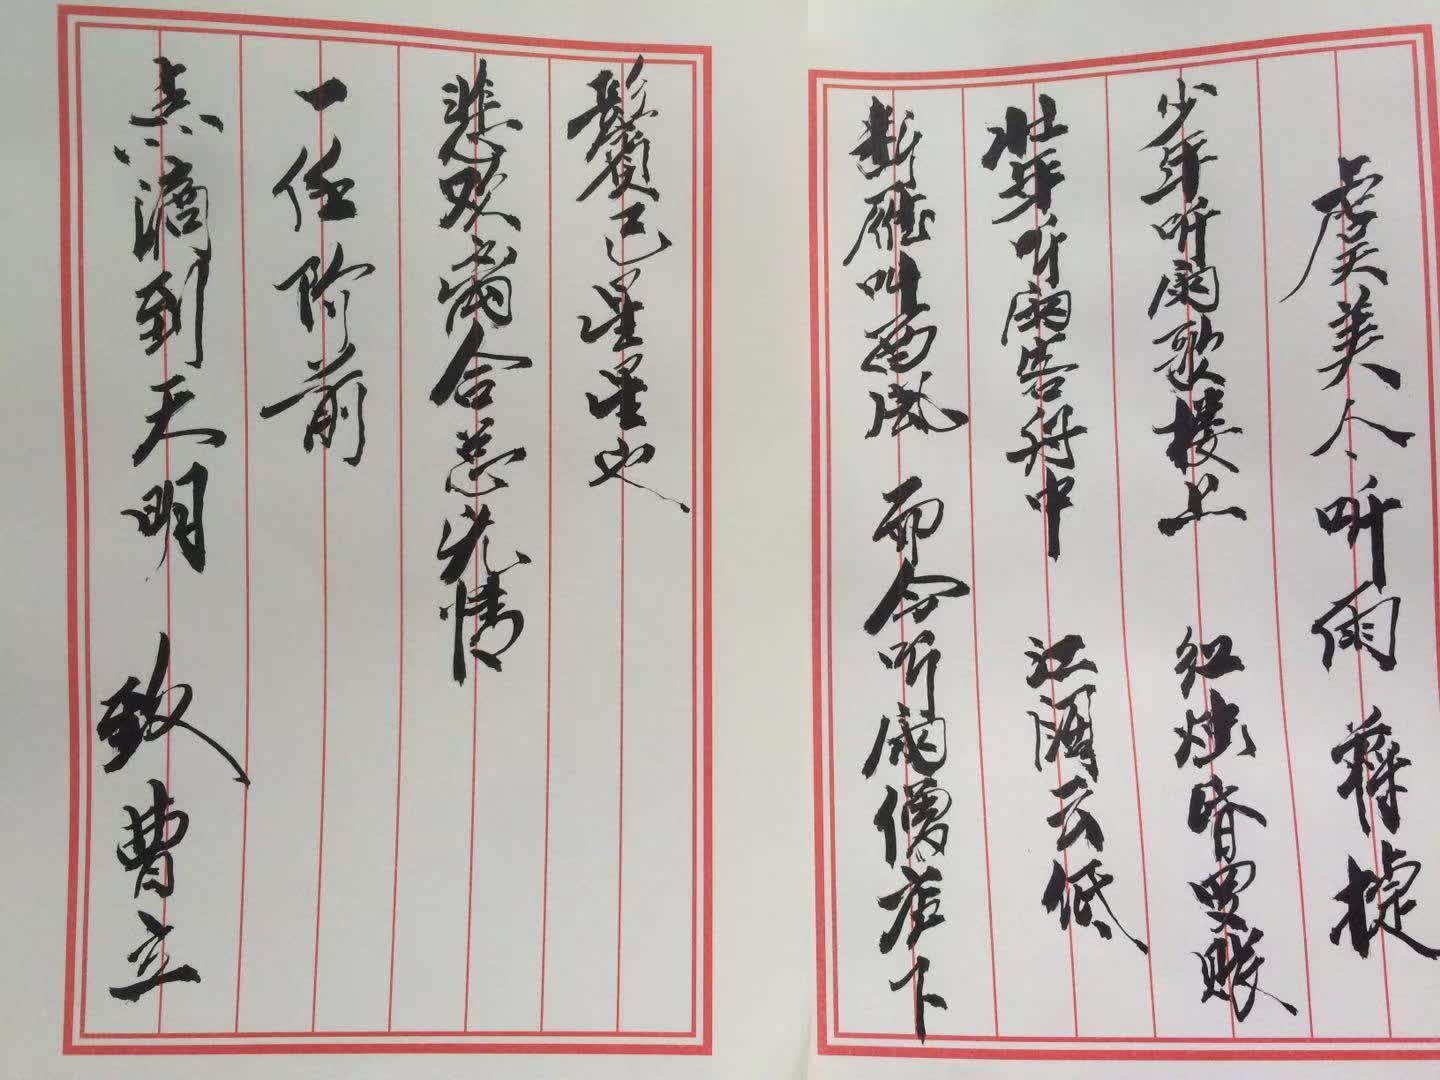 虞美人 听雨 蒋捷
少年听雨歌楼上 红烛昏罗账
壮年听雨客舟中 江阔云低
断雁叫西风 而今听雨僧庐下
鬓已星星也
悲欢离合总无情
一任阶前
点滴到天明 致曹立